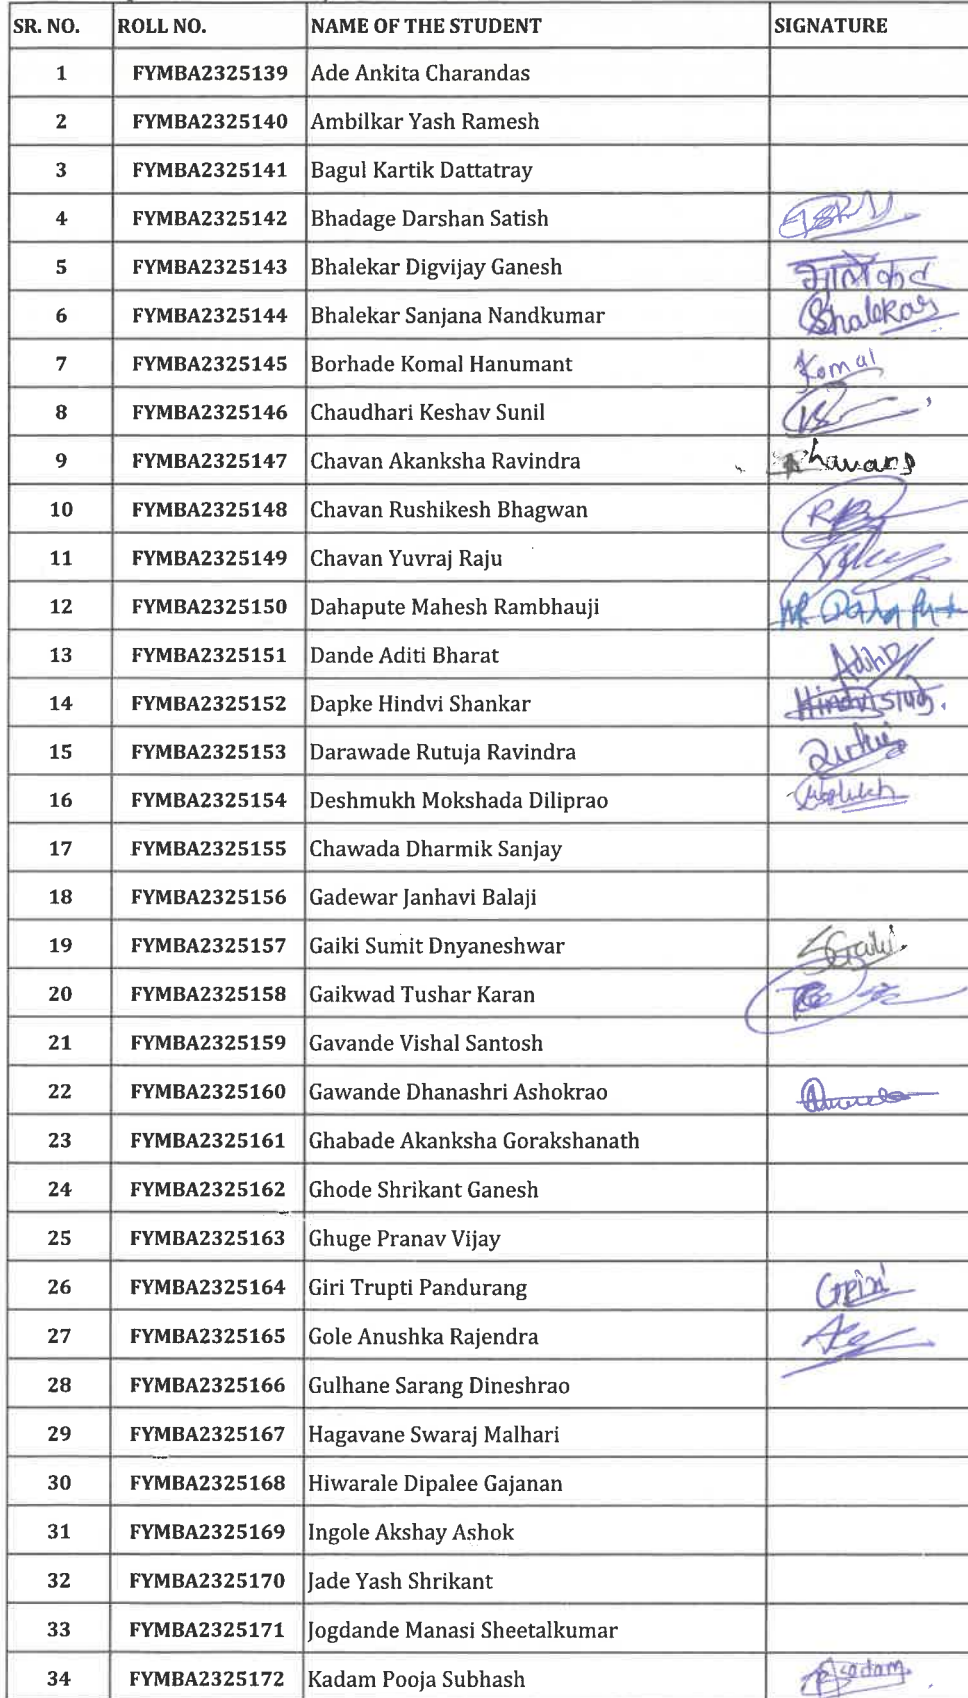 SR. NO. ROLL NO. NAME OF THE STUDENT SIGNATURE
1 FYMBA2325139 Ade Ankita Charandas
2 FYMBA2325140 Ambilkar Yash Ramesh
3 FYMBA2325141 Bagul Kartik Dattatray
4 FYMBA2325142 Bhadage Darshan Satish
5 FYMBA2325143 Bhalekar Digvijay Ganesh
6 FYMBA2325144 Bhalekar Sanjana Nandkumar Bhalekar
7 FYMBA2325145 Borhade Komal Hanumant Komal
8 FYMBA2325146 Chaudhari Keshav Sunil
9 FYMBA2325147 Chavan Akanksha Ravindra
10 FYMBA2325148 Chavan Rushikesh Bhagwan
11 FYMBA2325149 Chavan Yuvraj Raju
12 FYMBA2325150 Dahapute Mahesh Rambhauji
13 FYMBA2325151 Dande Aditi Bharat
14 FYMBA2325152 Dapke Hindvi Shankar
15 FYMBA2325153 Darawade Rutuja Ravindra
16 FYMBA2325154 Deshmukh Mokshada Diliprao
17 FYMBA2325155 Chawada Dharmik Sanjay
18 FYMBA2325156 Gadewar Janhavi Balaji
19 FYMBA2325157 Gaiki Sumit Dnyaneshwar
20 FYMBA2325158 Gaikwad Tushar Karan
21 FYMBA2325159 Gavande Vishal Santosh
22 FYMBA2325160 Gawande Dhanashri Ashokrao
23 FYMBA2325161 Ghabade Akanksha Gorakshanath
24 FYMBA2325162 Ghode Shrikant Ganesh
25 FYMBA2325163 Ghuge Pranav Vijay
26 FYMBA2325164 Giri Trupti Pandurang
27 FYMBA2325165 Gole Anushka Rajendra
28 FYMBA2325166 Gulhane Sarang Dineshrao
29 FYMBA2325167 Hagavane Swaraj Malhari
30 FYMBA2325168 Hiwarale Dipalee Gajanan
31 FYMBA2325169 Ingole Akshay Ashok
32 FYMBA2325170 Jade Yash Shrikant
33 FYMBA2325171 Jogdande Manasi Sheetalkumar
34 FYMBA2325172 Kadam Pooja Subhash